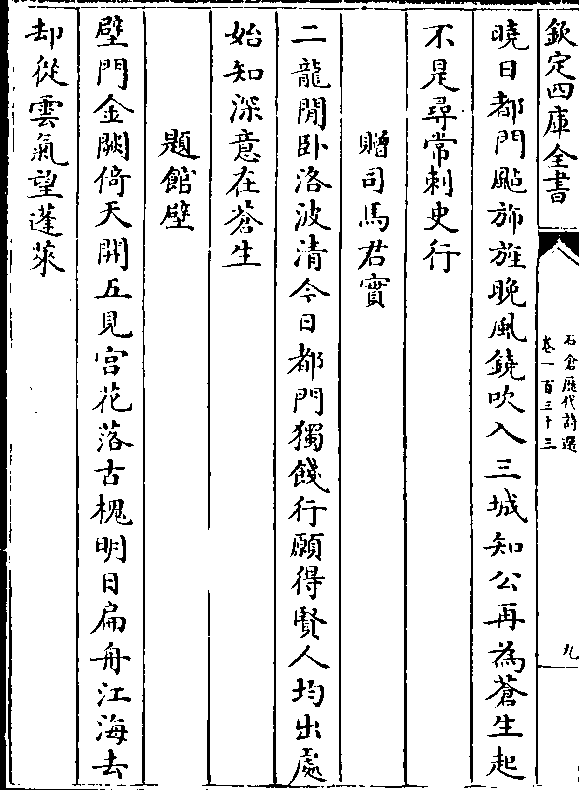 欽定四庫全書
石倉歷代詩選
卷一百三十三
九
曉日都門颭旆旌晚風鐃吹入三城知公再為蒼生起
不是尋常刺史行
贈司馬君實
二龍閒卧洛波清今日都門獨餞行願得賢人均出處
始知深意在蒼生
題館壁
壁門金闕倚天開五見宮花落古槐明日扁舟江海去
却從雲氣望蓬萊